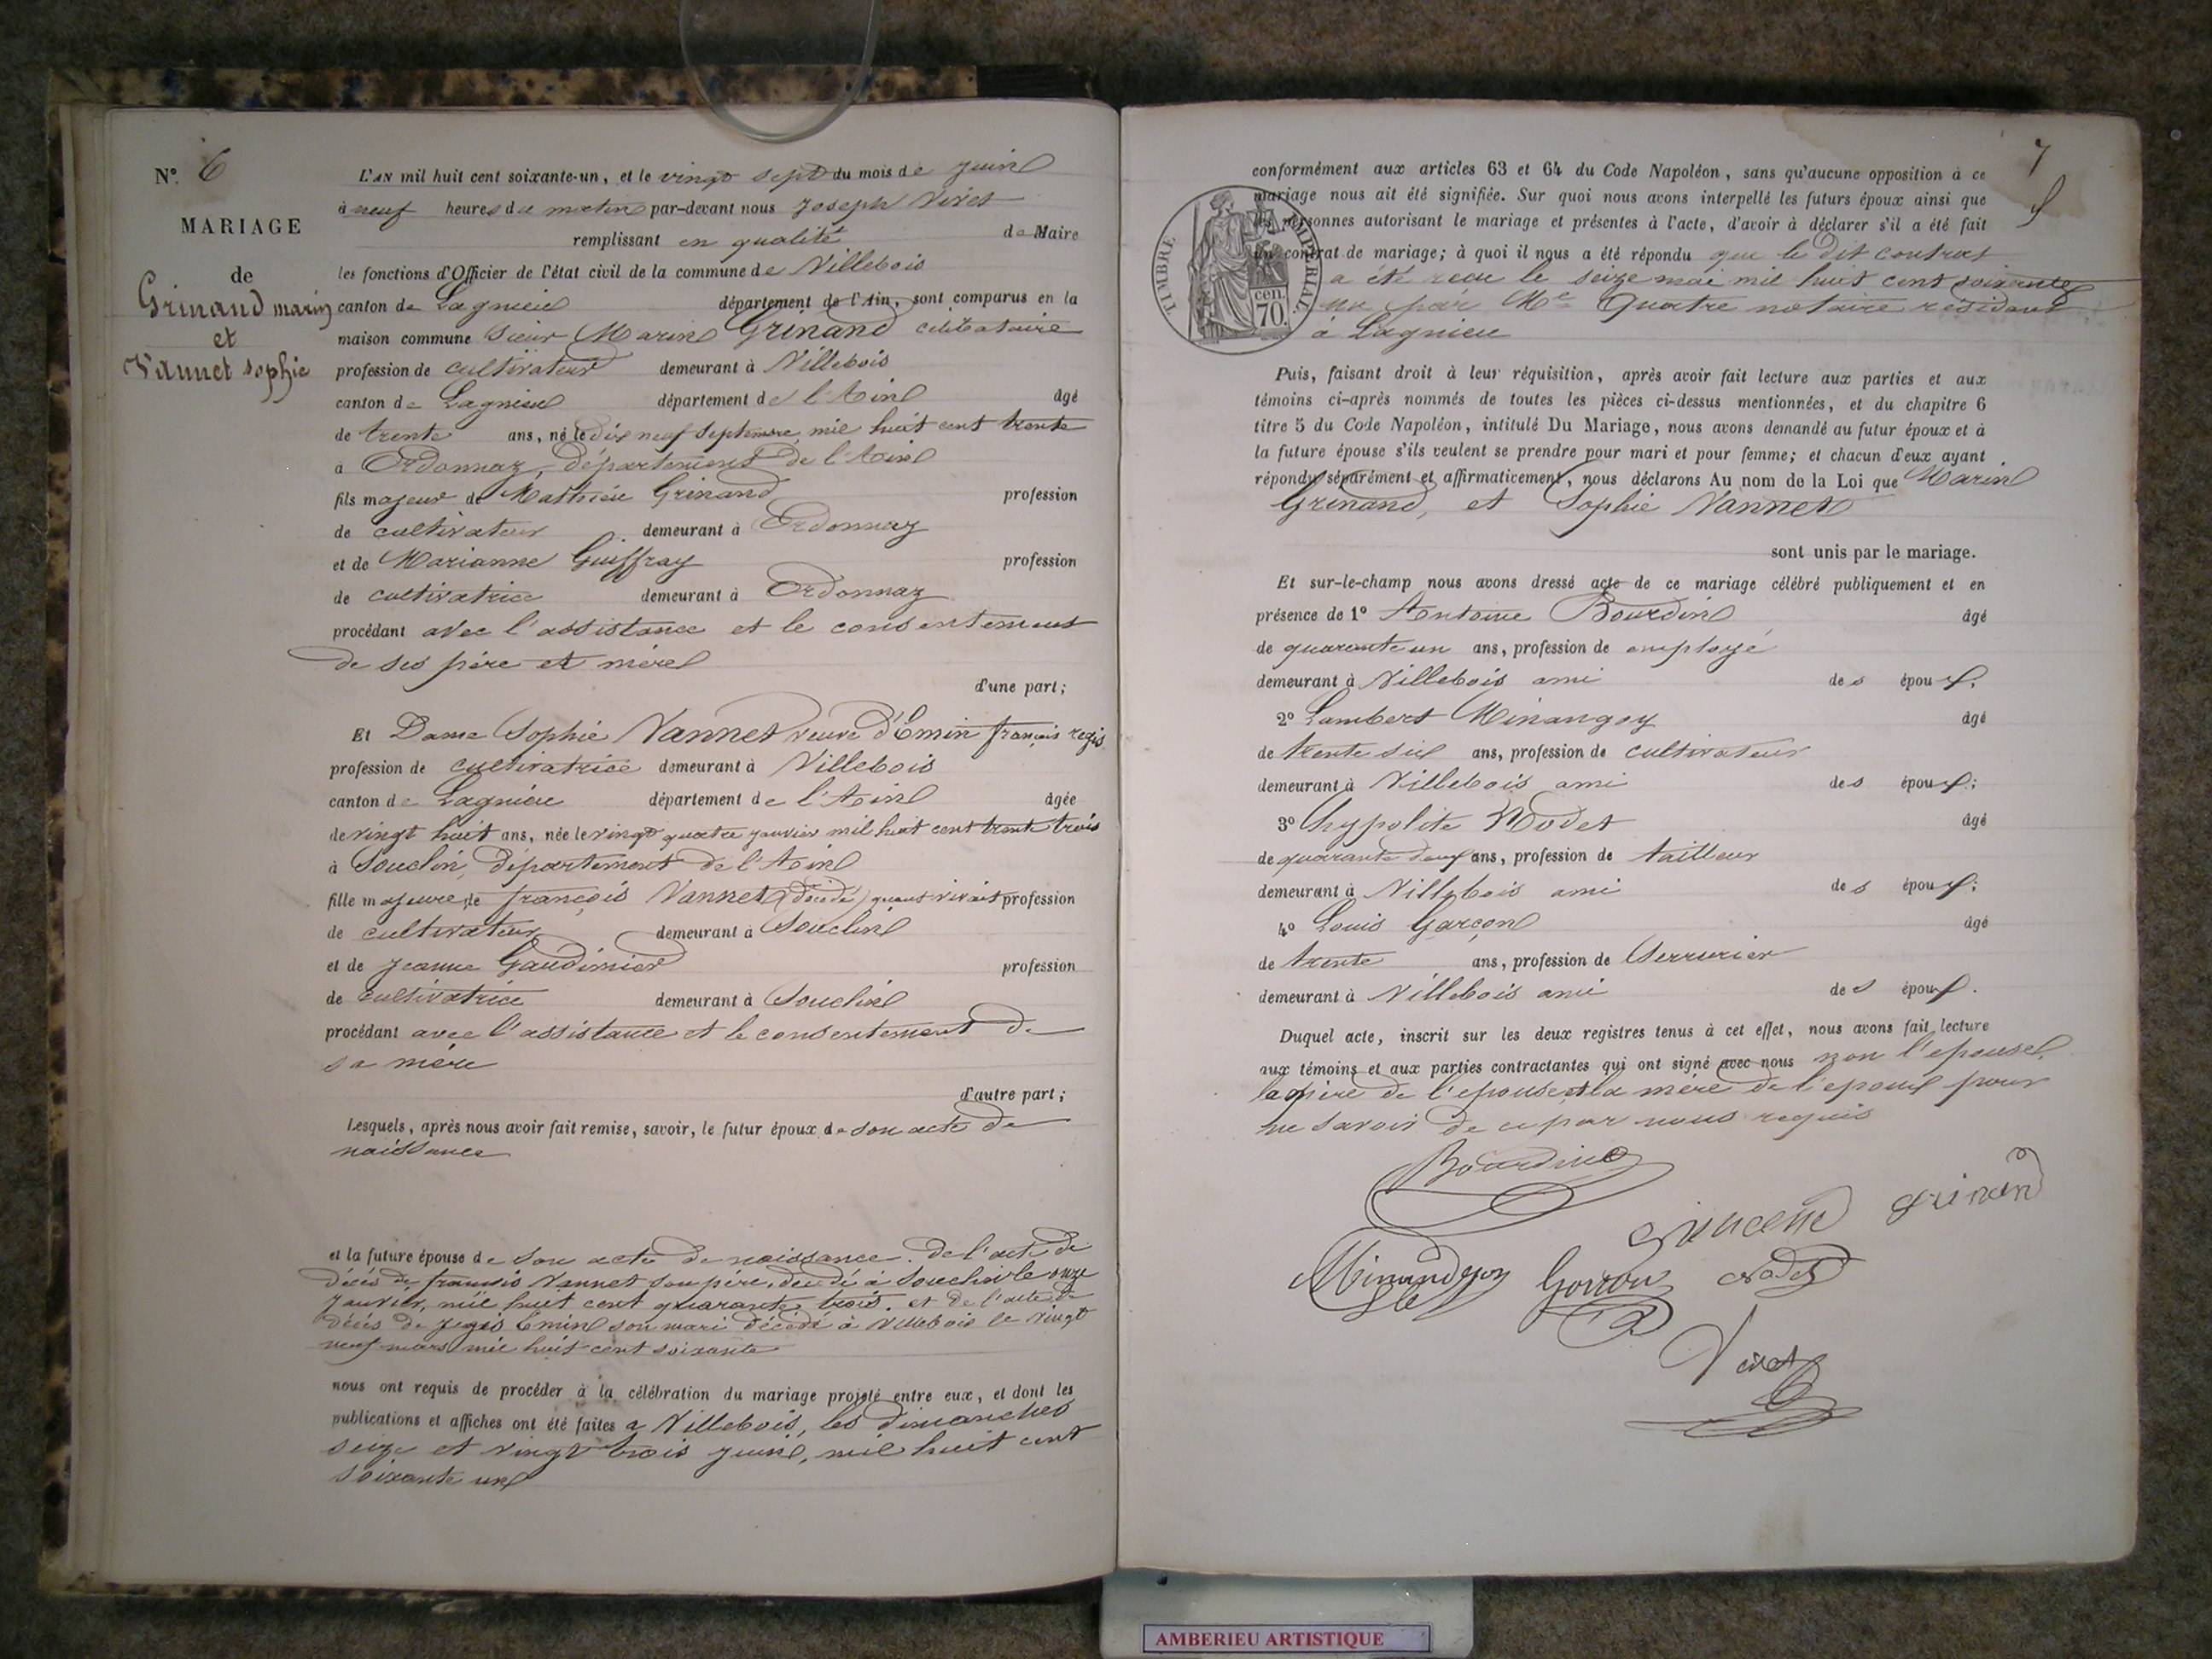 N°. 6
MARIAGE
de
Grinand marin
et
Vannet sophie
L'AN mil huit cent soixante-un, et le vingt sept du mois de juin
à neuf heures du matin par-devant nous Joseph Vivet
remplissant en qualité de Maire
les fonctions d'Officier de l'état civil de la commune de Villebois
canton de Lagnieu département de l'Ain, sont comparus en la
maison commune Sieur Marin Grinand célibataire
profession de cultivateur demeurant à Villebois
canton de Lagnieu département de l'Ain âgé
de trente ans, né le dix neuf septembre mil huit cent trente
à Ordonnaz, département de l'Ain
fils majeur de Mathieu Grinand profession
de cultivateur demeurant à Ordonnaz
et de Marianne Guiffray profession
de cultivatrice demeurant à Ordonnaz
procédant avec l'assistance et le consentement
de ses père et mère
d'une part;
Et Dame Sophie Vannet veuve d'Emin françois regis
profession de cultivatrice demeurant à Villebois
canton de Lagnieu département de l'Ain âgée
de vingt huit ans, née le vingt quatre janvier mil huit cent trente trois
à Souclin, département de l'Ain
fille majeure de françois Vannet (décédé) quant vivait profession
de cultivateur demeurant à Souclin
et de Jeanne Gaudimier profession
de cultivatrice demeurant à Souclin
procédant avec l'assistance et le consentement de
sa mère
d'autre part;
Lesquels, après nous avoir fait remise, savoir, le futur époux de son acte de
naissance
et la future épouse de son acte de naissance. de l'acte de
décès de françois Vannet son père, décédé à Souclin le onze
janvier, mil huit cent quarante trois. et de l'acte de
décès de regis Emin son mari décédé à Villebois le vingt
neuf mars mil huit cent soixante
nous ont requis de procéder à la célébration du mariage projeté entre eux, et dont les
publications et affiches ont été faites a Villebois, les dimanches
seize et vingt trois juin, mil huit cent
soixante un
7
conformément aux articles 63 et 64 du Code Napoléon, sans qu'aucune opposition à ce
mariage nous ait été signifiée. Sur quoi nous avons interpellé les futurs époux ainsi que
les personnes autorisant le mariage et présentes à l'acte, d'avoir à déclarer s'il a été fait
un contrat de mariage; à quoi il nous a été répondu que le dit contrat
a été reçu le seize mai mil huit cent soixante
un par Me Quatre notaire résidant
à Lagnieu
TIMBRE IMPÉRIAL
cen.
70.
Puis, faisant droit à leur réquisition, après avoir fait lecture aux parties et aux
témoins ci-après nommés de toutes les pièces ci-dessus mentionnées, et du chapitre 6
titre 5 du Code Napoléon, intitulé Du Mariage, nous avons demandé au futur époux et à
la future épouse s'ils veulent se prendre pour mari et pour femme; et chacun d'eux ayant
répondu séparément et affirmativement, nous déclarons Au nom de la Loi que Marin
Grinand, et Sophie Vannet
sont unis par le mariage.
Et sur-le-champ nous avons dressé acte de ce mariage célébré publiquement et en
présence de 1° Antoine Bourdin âgé
de quarante un ans, profession de employé
demeurant à Villebois ami des époux;
2° Lambert Minangoy âgé
de trente six ans, profession de cultivateur
demeurant à Villebois ami des époux;
3° hypolite Nodet âgé
de quarante deux ans, profession de tailleur
demeurant à Villebois ami des époux;
4° Louis Garçon âgé
de trente ans, profession de Serrurier
demeurant à Villebois ami des époux.
Duquel acte, inscrit sur les deux registres tenus à cet effet, nous avons fait lecture
aux témoins et aux parties contractantes qui ont signé avec nous non l'epouse,
la mère de l'epouse et la mère de l'epoux pour
ne savoir de ce par nous requis
Bourdin
Grinand
Nodet
Vivet
AMBERIEU ARTISTIQUE